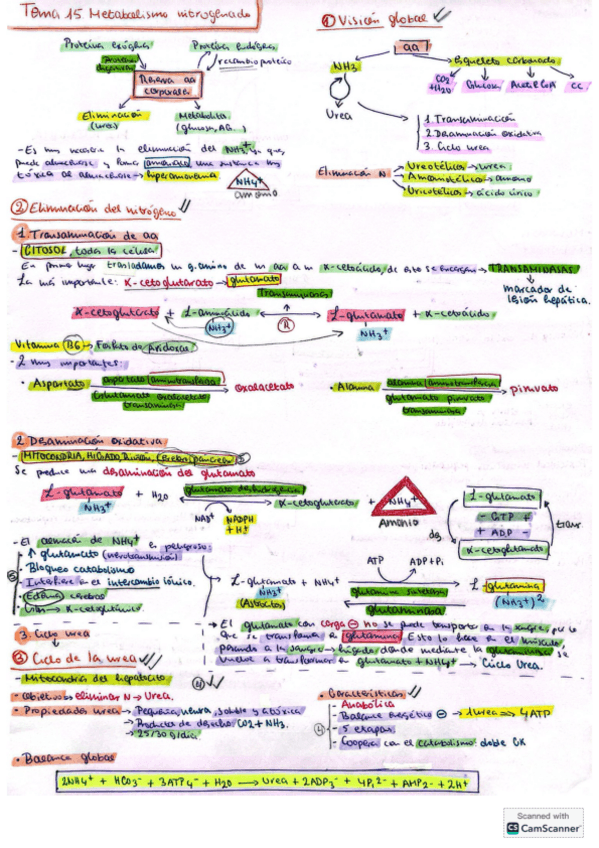 Tema 15 Metabolismo nitrogenado
Proteína exógena
Proteína endógena
recambio proteico
Reserva aa corporales
Eliminación (urea)
Metabolitos (glucosa, AG...)
- Es muy necesaria la eliminación del NH3+, ya que,
puede acumularse y forma amoniaco una sustancia muy
tóxica al acumularse → hiperamonemia
NH4+
amonio
① Visión global
aa
NH3
Esqueleto carbonado
Urea
CO2 + H2O
Glucosa
Acetil CoA
CC
1. Transaminación
2. Desaminación oxidativa
3. Ciclo urea
Eliminación N
Ureotélicos → urea
Amoniotélicos → amonio
Uricotélicos → ácido úrico
② Eliminación del nitrógeno
1. Transaminación de aa
- CITOSOL, toda la célula
En primer lugar trasladamos un g. amino de un aa a un α-cetoácido, de esto se encargan → TRANSAMINASAS
marcador de lesión hepática.
La más importante: α-cetoglutarato → glutamato
Transaminasas
α-cetoglutarato + L-aminoácido
NH3+
L-glutamato + α-cetoácido
NH3+
Vitamina B6 → Fosfato de piridoxal
- 2 muy importantes:
· Aspartato
aspartato aminotransferasa
Glutamato oxalacetato transaminasa
oxalacetato
· Alanina
alanina aminotransferasa
glutamato piruvato transaminasa
piruvato
2 Desaminación oxidativa
- MITOCONDRIA, HÍGADO, Riñón, Cerebro, páncreas
Se produce una desaminación del glutamato
L-glutamato + H2O
NH3+
glutamato deshidrogenasa
NAD+
NADPH + H+
α-cetoglutarato +
NH4+
Amonio
L-glutamato
- GTP +
+ ADP -
α-cetoglutarato
des
tran
- El aumento de NH4+ es peligroso:
↑ glutamato (neurotransmisión)
· Bloqueo catabolismo
· Interfiere en el intercambio iónico.
· Edema cerebral
α-cetoglutárico
L-glutamato + NH4+
NH3+
(Astrocitos)
ATP
ADP + Pi
glutamina sintetasa
glutaminasa
L-glutamina
(NH3+)2
→ El glutamato con carga ⊖ no se puede transportar en la sangre, por lo
que se transforma en glutamina. Esto lo hace en el músculo,
pasando a la sangre → hígado donde mediante la glutaminasa, se
vuelve a transformar en glutamato + NH4+ → Ciclo Urea.
3. Ciclo urea
③ Ciclo de la urea
- Mitocondria del hepatocito
- Objetivo → eliminar N → Urea.
· Propiedades urea → Pequeña, neutra, soluble y atóxica
→ Producto de desecho CO2 + NH3.
→ 25/30 g/día
· Características
- Anabólica
- Balance energético ⊖ → 1 urea → 4 ATP
- 5 etapas
- Coopera con el catabolismo doble CK
· Balance global
2NH4+ + HCO3- + 3ATP4- + H2O → Urea + 2ADP3- + 4Pi2- + AMP2- + 2H+
Scanned with
CS CamScanner